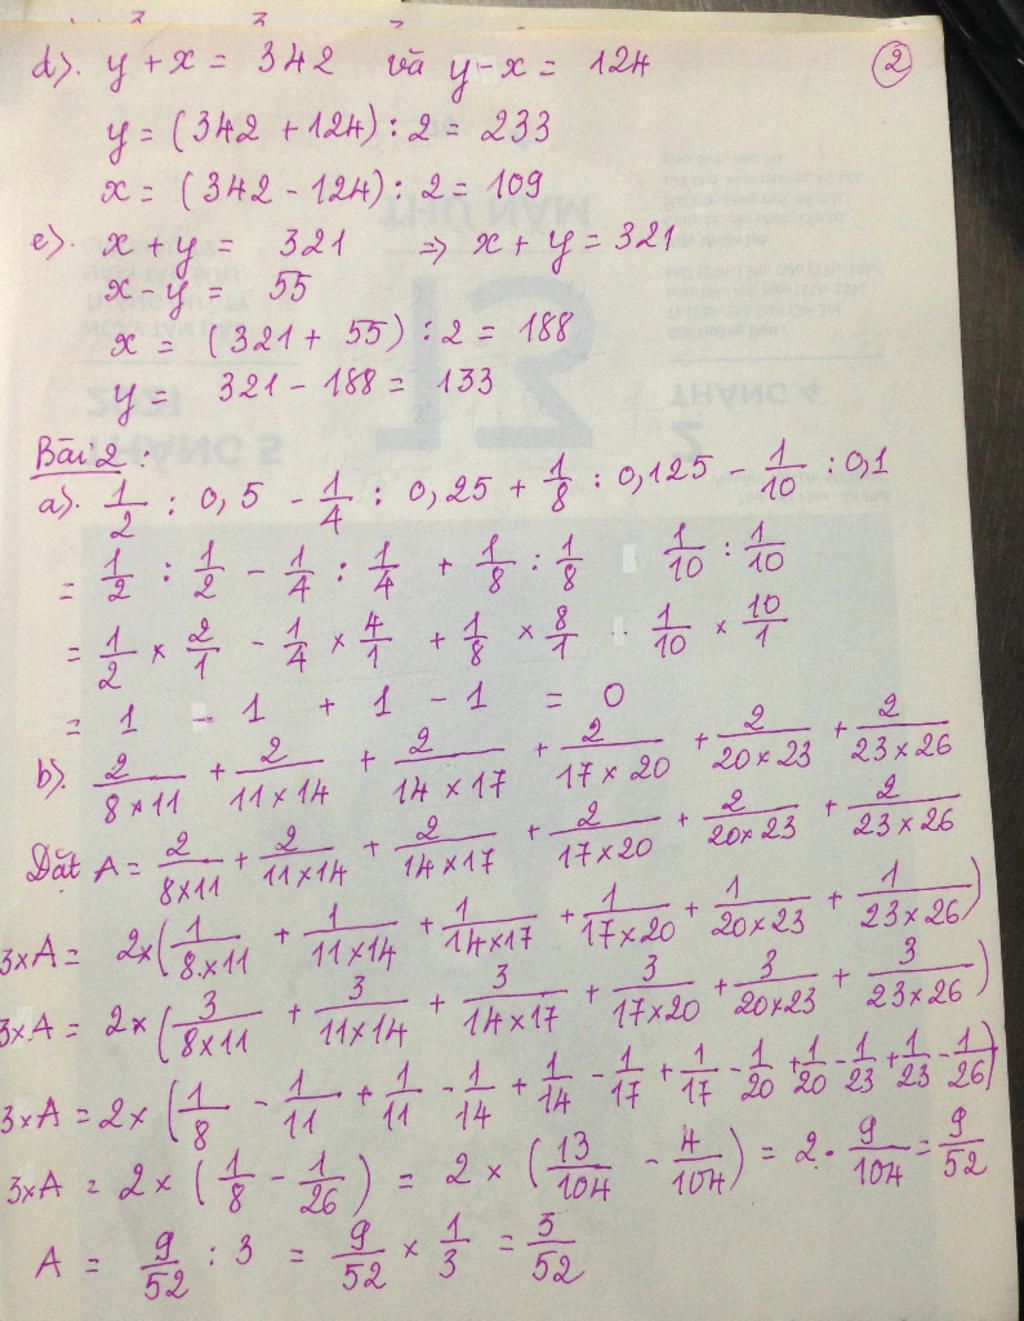 d). y + x = 342 và y - x = 124 ②
y = (342 + 124) : 2 = 233
x = (342 - 124) : 2 = 109
e). x + y = 321 => x + y = 321
x - y = 55
x = (321 + 55) : 2 = 188
y = 321 - 188 = 133
Bài 2 :
a). 1/2 : 0,5 - 1/4 : 0,25 + 1/8 : 0,125 - 1/10 : 0,1
= 1/2 : 1/2 - 1/4 : 1/4 + 1/8 : 1/8 1/10 : 1/10
= 1/2 × 2/1 - 1/4 × 4/1 + 1/8 × 8/1 - 1/10 × 10/1
= 1 - 1 + 1 - 1 = 0
b). 2/(8×11) + 2/(11×14) + 2/(14×17) + 2/(17×20) + 2/(20×23) + 2/(23×26)
Đặt A = 2/(8×11) + 2/(11×14) + 2/(14×17) + 2/(17×20) + 2/(20×23) + 2/(23×26)
3×A = 2×(1/(8×11) + 1/(11×14) + 1/(14×17) + 1/(17×20) + 1/(20×23) + 1/(23×26))
3×A = 2×(3/(8×11) + 3/(11×14) + 3/(14×17) + 3/(17×20) + 3/(20×23) + 3/(23×26))
3×A = 2×(1/8 - 1/11 + 1/11 - 1/14 + 1/14 - 1/17 + 1/17 - 1/20 + 1/20 - 1/23 + 1/23 - 1/26)
3×A = 2×(1/8 - 1/26) = 2×(13/104 - 4/104) = 2 . 9/104 = 9/52
A = 9/52 : 3 = 9/52 × 1/3 = 3/52